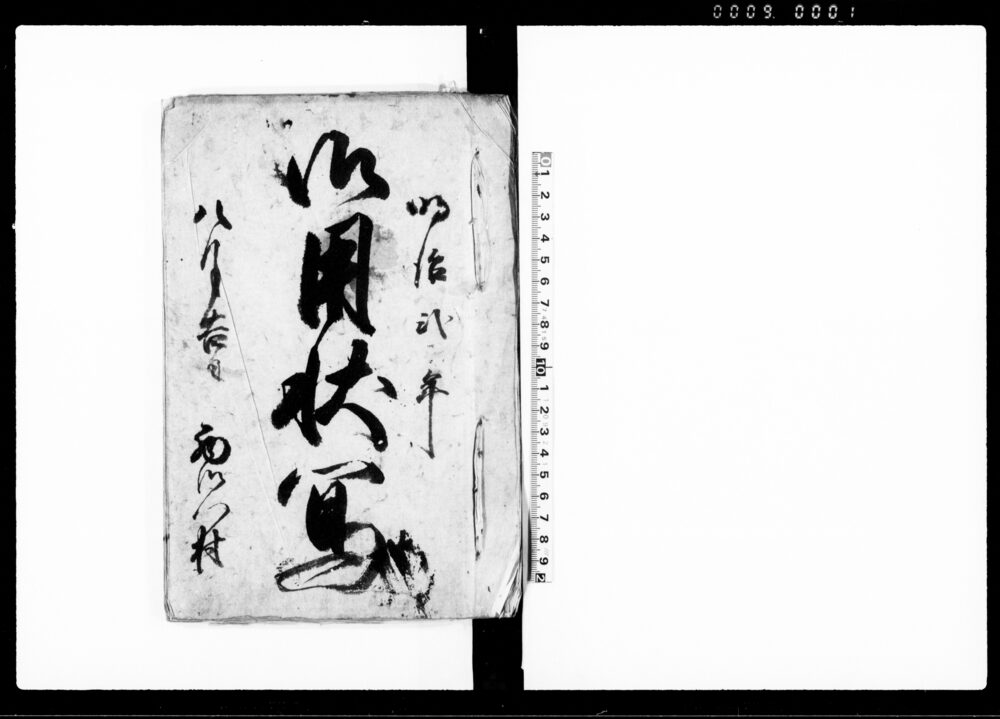 0009 0001
明治弐年
御用状写
八月吉日
村
0 1 2 3 4 5 6 7 8 9 10 1 2 3 4 5 6 7 8 9 2